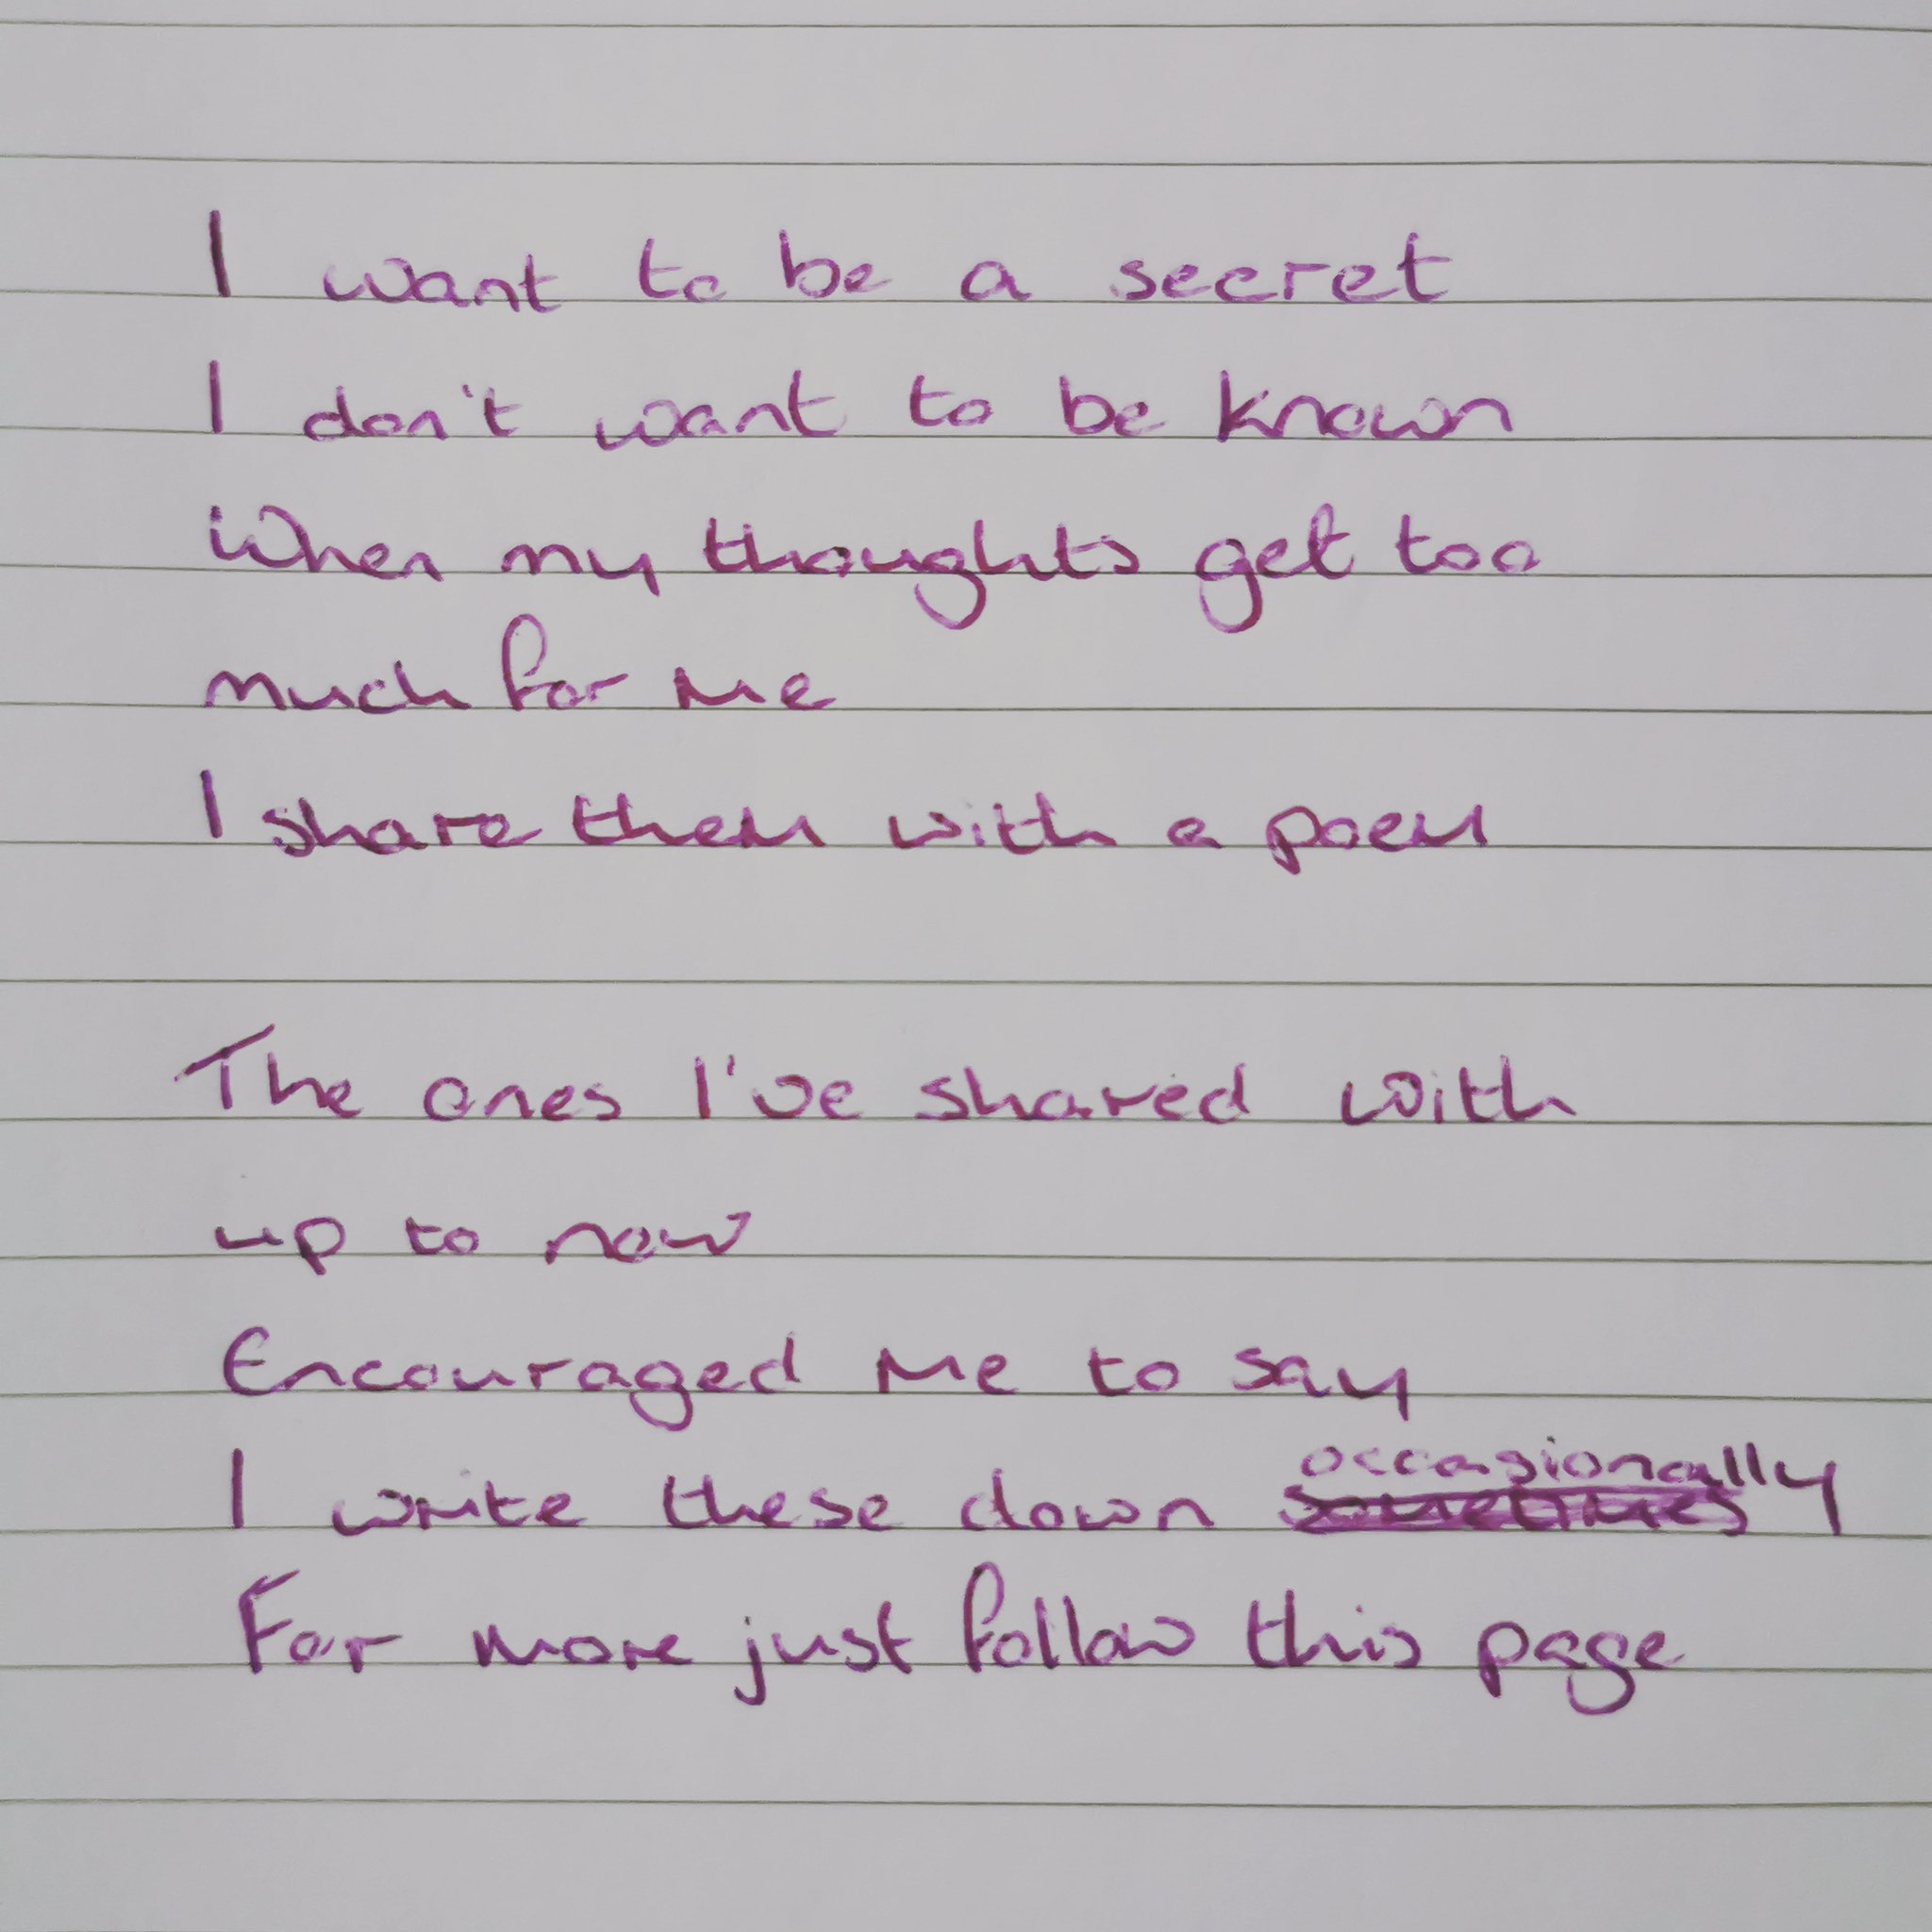 I want to be a secret
I don't want to be known
When my thoughts get too
much for me
I share them with a poem
The ones I've shared with
up to now
Encouraged me to say
I write these down ~~sometimes~~ occasionally
For more just follow this page